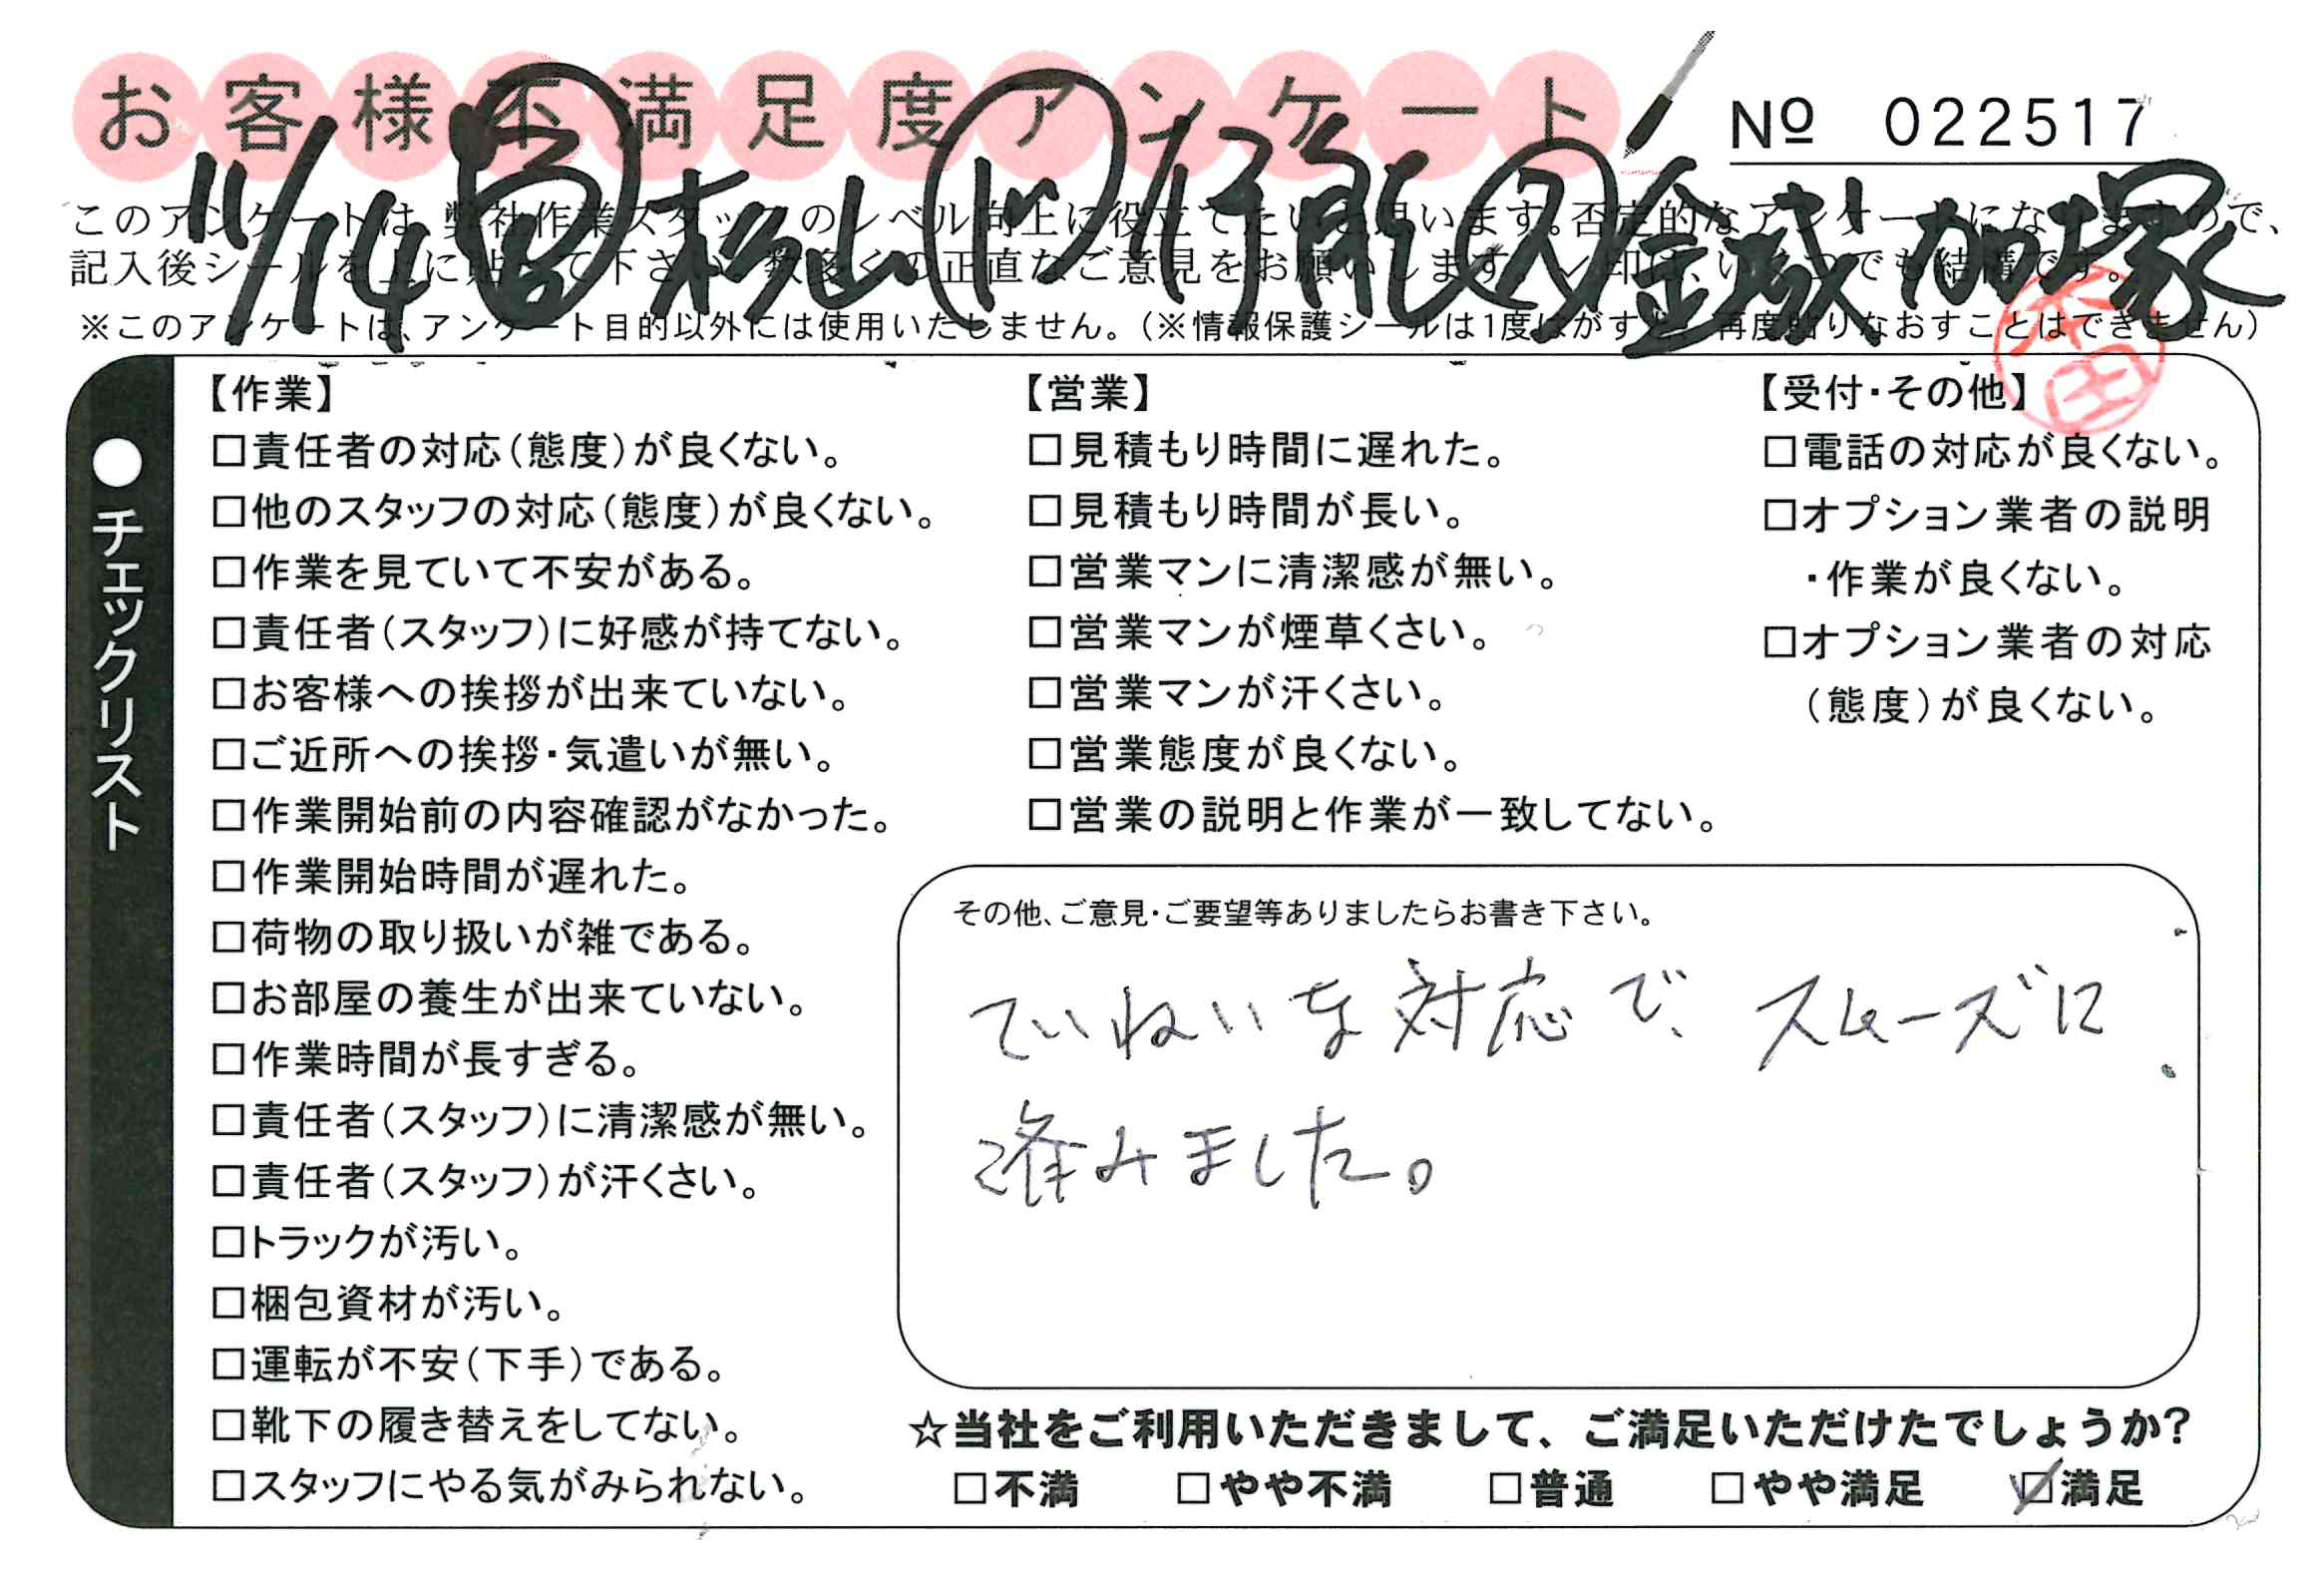 お客様不満足度アンケート
№ 022517
11/14 営 杉山 行 入 金城 加塚
このアンケートは、弊社作業スタッフのレベル向上に役立てたいと思います。否定的なアンケートになりますので、
記入後シールを上に貼って下さい。数多くの正直なご意見をお願いします。レ印は、いくつでも結構です。
※このアンケートは、アンケート目的以外には使用いたしません。（※情報保護シールは1度はがすと、再度貼りなおすことはできません）
●チェックリスト
【作業】
□責任者の対応（態度）が良くない。
□他のスタッフの対応（態度）が良くない。
□作業を見ていて不安がある。
□責任者（スタッフ）に好感が持てない。
□お客様への挨拶が出来ていない。
□ご近所への挨拶・気遣いが無い。
□作業開始前の内容確認がなかった。
□作業開始時間が遅れた。
□荷物の取り扱いが雑である。
□お部屋の養生が出来ていない。
□作業時間が長すぎる。
□責任者（スタッフ）に清潔感が無い。
□責任者（スタッフ）が汗くさい。
□トラックが汚い。
□梱包資材が汚い。
□運転が不安（下手）である。
□靴下の履き替えをしてない。
□スタッフにやる気がみられない。
【営業】
□見積もり時間に遅れた。
□見積もり時間が長い。
□営業マンに清潔感が無い。
□営業マンが煙草くさい。
□営業マンが汗くさい。
□営業態度が良くない。
□営業の説明と作業が一致してない。
【受付・その他】
□電話の対応が良くない。
□オプション業者の説明
・作業が良くない。
□オプション業者の対応
（態度）が良くない。
本田
その他、ご意見・ご要望等ありましたらお書き下さい。
ていねいな対応で、スムーズに
進みました。
☆当社をご利用いただきまして、ご満足いただけたでしょうか?
□不満 □やや不満 □普通 □やや満足 ☑満足